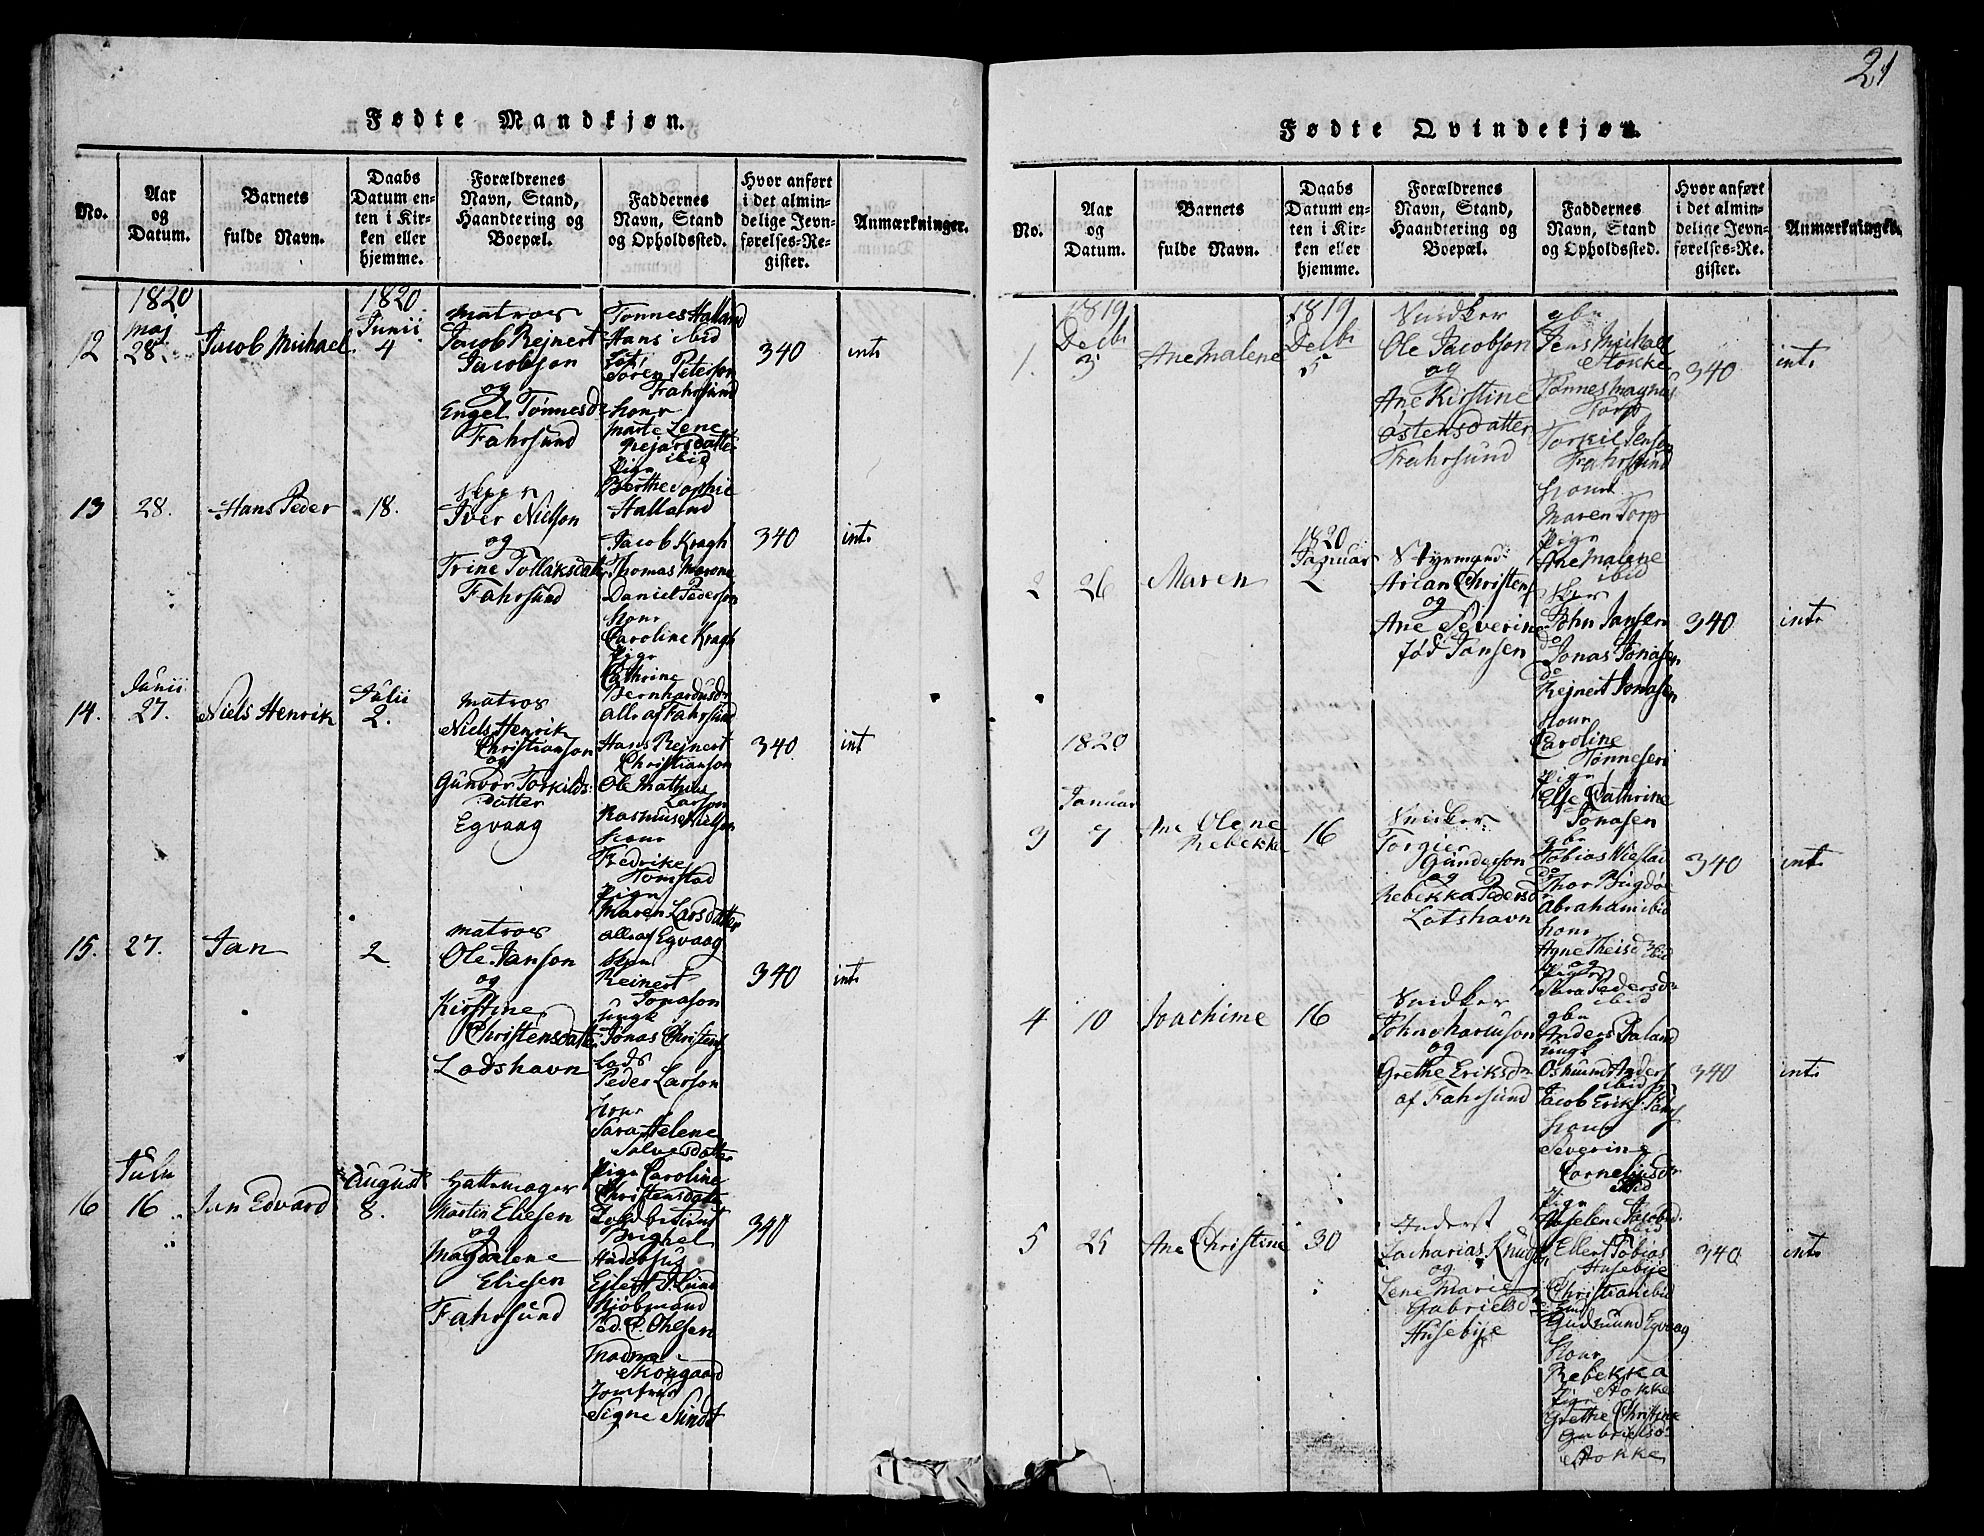 21
Fødte Mandkjøn.
No.
Aar
og
Datum.
Barnets
fulde Navn.
Daabs
Datum en-
ten i Kir-
ken eller
hjemme.
Forældrenes
Navn, Stand,
Haandtering og
Boepæl.
Faddernes
Navn, Stand
og Opholdssted.
Hvor anført
i det almin-
delige Jevn-
førelses-Re-
gister.
Anmærkninger.
12
1820
Maj
28.
Jacob Michael
1820
Junii
4
Matros
Jacob Rejnert
Jacobson
og
Engel Tønnesdr
Fahrsund
Tønnes Halland
Hans ibid
Søren Peterson
Fahrsund
Konr
Marte Lene
Rejarsdatter
ibid
Pigr
Berthe Sophie
Halland
340
int.
13
28.
Hans Peder
18.
Iver Nielson
og
Trine Tollaksdatter
Fahrsund
Jacob Kragh
Thomas Marone
Daniel Pederson
Konr
Caroline Kragh
Pigr
Cathrine
Bernhardusdr
alle af Fahrsund
340
int.
14.
Junii
27.
Niels Henrik
Julii
2.
Matros
Niels Henrik
Christianson
og
Gunvor Torkilds-
datter
Egvaag
Hans Rejnert
Christianson
Ole Mathias
Larson
Rasmus Nielson
Konr
Fredrike
Tomstad
Pigr
Maren Larsdatter
alle af Egvaag
340
int
15.
27.
Jan
2.
Matros
Ole Janson
og
Kirstine
Christensdatter
Lodshavn
Reinert
Jonason
ungk
Jonas Christens
Lods
Peder Larson
Konr
Sara Helene
Salvesdatter
Pigr Caroline
Christensdatter
340
int.
16
Julii
16
Jan Edvard
August
8.
Hattemager
Martin Eliesen
og
Magdalene
Eliesen
Fahrsund
Toldbetient
Ejlert P. Lund
Kiøbmand
Ped. C. Ohlsen
Madme
Skougaard
Jomfrue
Signe Sundt
340
Fødte Qvindekjøn.
No.
Aar
og
Datum.
Barnets
fulde Navn.
Daabs
Datum en-
ten i Kir-
ken eller
hjemme.
Forældrenes
Navn, Stand,
Haandtering og
Boepæl.
Faddernes
Navn, Stand
og Opholdssted.
Hvor anført
i det almin-
delige Jevn-
førelses-Re-
gister.
Anmærkninger.
1.
1819
Decbr
3
Ane Malene
1819
Decbr
5
Snidker
Ole Jacobson
og
Ane Kirstine
Østensdatter
Fahrsund
gbr
Jens Michael
Stokke
Tønnes Magnus
Torp
Torkil Jensen
Fahrsund
Konr
Maren Torp
Pigr
Ane Malene
ibid
340
int.
2
26
Maren
1820
Januar
2
Styrmand
Arian Christens
og
Ane Severine
fød Jansen
John Jansen
do
Jonas Jonasen
do
Rejnert Jonasen
Konr
Caroline
Tønnesen
Pigr
Else Cathrine
Jonasen
340
int.
3
1820
Januar
7
Ane Olene
Rebekke
16
Snidker
Torgier
Gunderson
og
Rebekka Pedersd
Lotshavn
gbr
Tobias
do
Thor Bugdøe
Abraham ibid
Konr
Agne Theisd ibid
og
Pigr
Sara Pedersdr
ibid
340
int.
4
10
Joachime
16
Snidker
John
og
Grethe Eriksdr
af Fahrsund
gbr
Anders Paland
ungk
Anders
ibid
Jacob Erik
Konr
Severine
Cornelius dr
ibid
Pigr
Aaselene Jacobsd.
ibid
340
int.
5
25
Ane Christine
30
Inderst
Zacharias Knuds
og
Lene Marie
Gabrielsdr
Husebye
Ellert Tobias
Husebye
Christian ibid
Gudmund Egvaag
Konr
Rebekka
Stokke
Pigr
Grethe Christine
Gabrielsdr
Stokke
340
int.